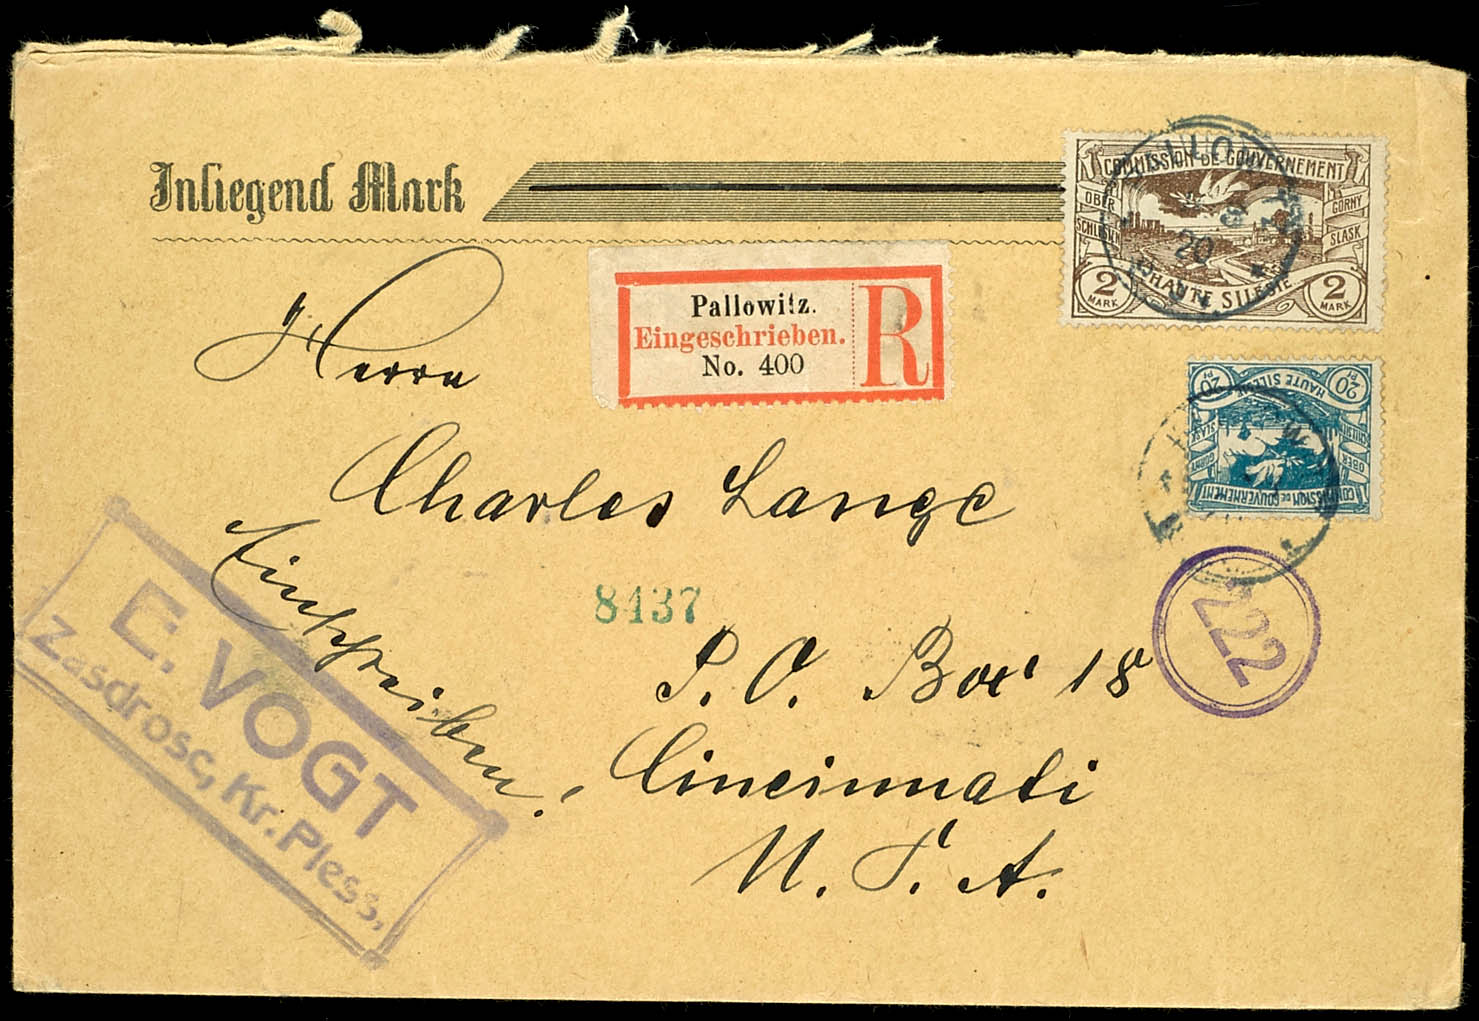 Inliegend Mark
COMMISSION DE GOUVERNEMENT
OBER SCHLESIEN
GORNY SLASK
2 MARK
HAUTE SILESIE
2 MARK
20
Pallowitz.
Eingeschrieben.
No. 400
R
20 Pf
HAUTE SILESIE
20 Pf
GORNY SLASK
OBER SCHLESIEN
COMMISSION DE GOUVERNEMENT
Herrn
Charles Lange
Einschreiben.
8437
222
P. O. Box 18
Cincinnati
U. S. A.
E. VOGT
Zasdrosc, Kr. Pless,